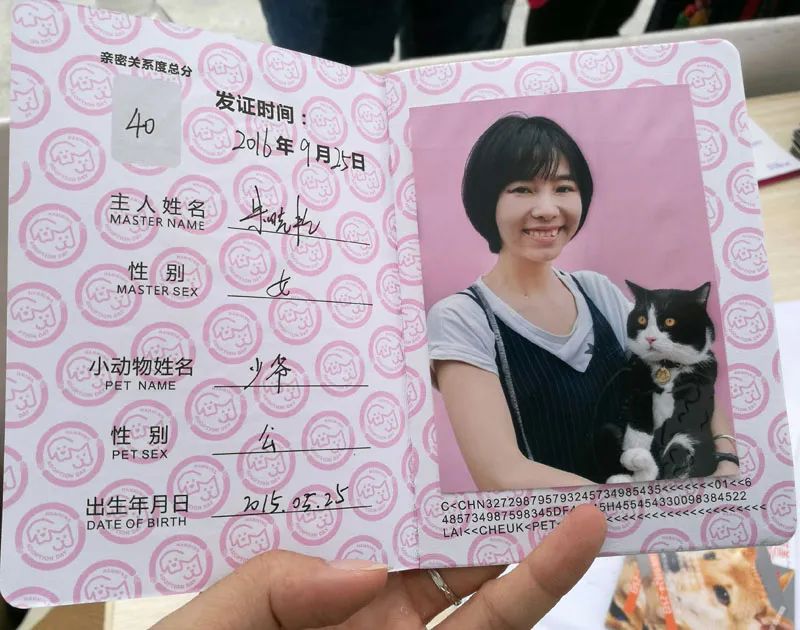 亲密关系度总分
40
发证时间：
2016年9月25日
主人姓名
MASTER NAME
朱晓
性 别
MASTER SEX
女
小动物姓名
PET NAME
少爷
性 别
PET SEX
公
出生年月日
DATE OF BIRTH
2015.05.25
ADOPTION DAY
C<CHN3272987957932457349854 35<<<<<<<01<<6
485734987598345DFA 5H455454330098384522
LAI<<CHEUK<PET <<<<<<<<<<<<<<<<<<<<<